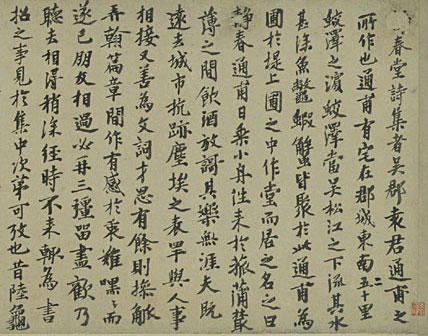 春堂詩集者吳郡袁君通甫之
所作也通甫有宅在郡城東南五十里
蛟澤之濱蛟澤當吳松江之下流其水
甚深魚鼈蝦蟹皆聚於此通甫為
圃於堤上圃之中作堂而居之名之曰
靜春通甫日乘小舟往來於菰蒲叢
薄之間飲酒放歌其樂無涯夫既
遠去城市抗跡塵埃之表罕與人事
相接又善為文詞才思有餘則操觚
弄翰篇章間作有感於衷難嘿嘿而
遂已朋友相過必再三彊留盡歡乃
聽去相得稍深經時不來輒為書
招之事見於集中次第可攷也昔陸龜